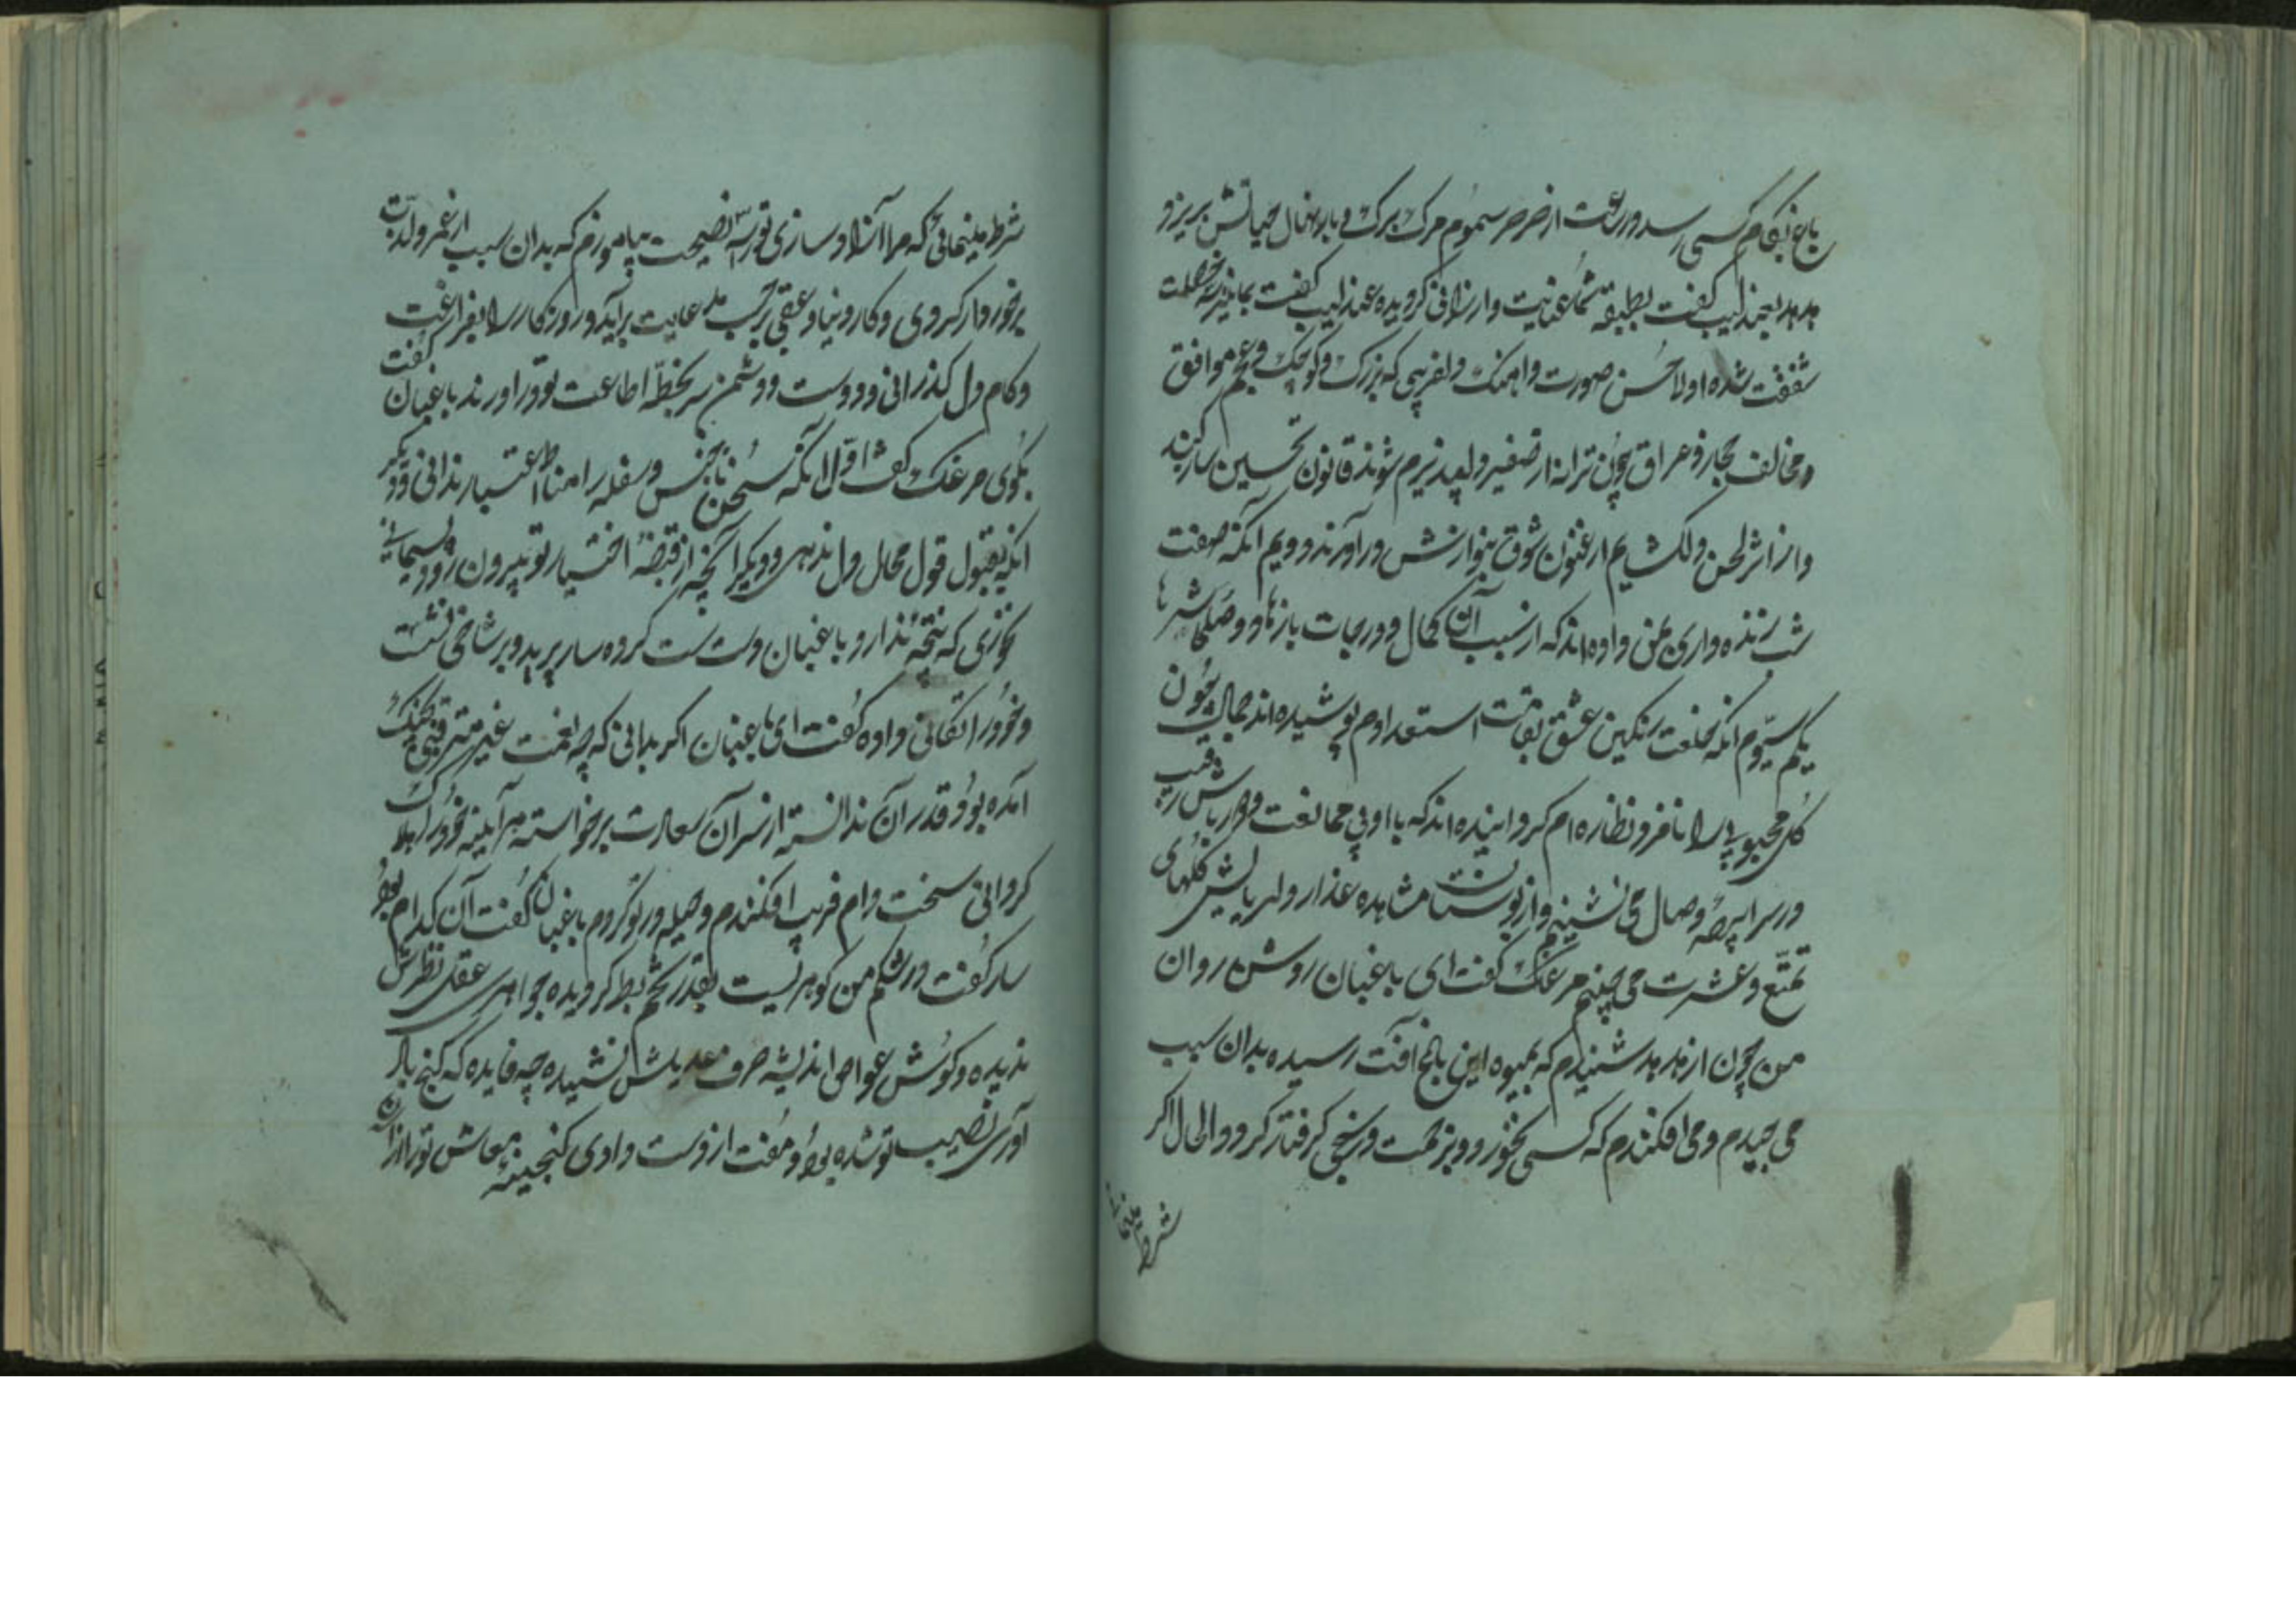 باغ بکام کسی رسد در ساعت از صرصر سموم مرک برک و بار نهال حیاتش بریزد
هدهد بعندلیب کفت بطبیقه شما عنایت و ارزانی کردیده عندلیب کفت بما نیز سه خصلت
شفقت شده اولا حسن صورت و اهنک دلفریبی که بزرک و کوچک و عجم موافق
و مخالف حجاز و عراق چون ترانه از صفیر دلپذیرم شوند قانون تحسین ساز کنند
و از اثر لحن دلکشایم ارغنون شوق بنوازش در آورند دویم آنکه صفت
شب زنده داری بمن داده اند که از سبب آن کمال و درجات بازها و وصلها شرها
یکم سیوم انکه خلعت رنکین عشق بقامت استعدادم پوشیده اند جمال چون
کل محبوبی را نامزد نظاره ام کردانیده اند که با او بی ممانعت و دورباش رقیب
در سراپرده وصال می نشینم و از بوستان مشاهده عذار دلربایش کلهای
تمتع و عشرت می چینم مرغک کفت ای باغبان روشن روان
من چون از هدهد شنیدم که بمیوه این باغ آفت رسیده بدان سبب
می چیدم و می افکندم که کسی نخورد و بزحمت و رنجی کرفتار نکردد الحال اکر
شرط مینمائی
شرط مینمائی که مرا آزاد سازی تو را سه نصیحت بیاموزم که بدان سبب از عمر و لذت
برخوردار کردی و کار دنیا و عقبی بر حسب مدعایت برآید و روزکار را بفراغت
و کام دل کذرانی و دوست و دشمن سر بخط اطاعت تو در اورند باغبان کفت
بکوی مرغک کفت اول انکه سخن ناجنس و سفله را مناط اعتبار ندانی و دیکر
انکه بقبول قول محال دل ندهی و دیکر آنچه از قبضه اختیار تو بیرون رود پشیمانی
نخوری که نتیجه ندارد باغبان دست سست کرده سار پرید و بر شاخی نشست
و خود را تکانی داده کفت ای باغبان اکر بدانی که چه نعمت غیر مترقبی بچنک
آمده بود و قدر آن ندانسته از سر آن سعادت برخواسته هر آینه خود را هلاک
کردانی سخت دام فریب افکندم و حیله در تو کردم باغبان کفت آن کدام بود
سار کفت در شکم من کوهریست بقدر تخم بط که دیده جواهری عقل نظیرش
ندیده و کوش غواص اندیشه حرف عدیلش نشنیده چه فایده که کنج باد
آوری نصیب تو شده بود و مفت از دست دادی کنجینه معاش تو را از آن